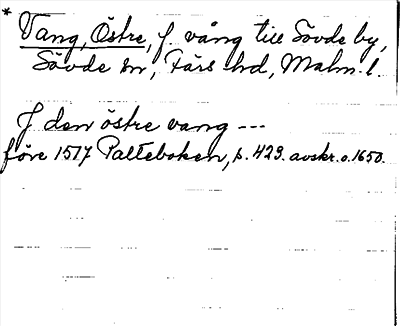 * Vang, Östre, f. vång till Sövde by,
Sövde sn, Färs hd, Malm. l.
J den östre vang ---
före 1517 Palteboken, s. 423. avskr. o. 1650.